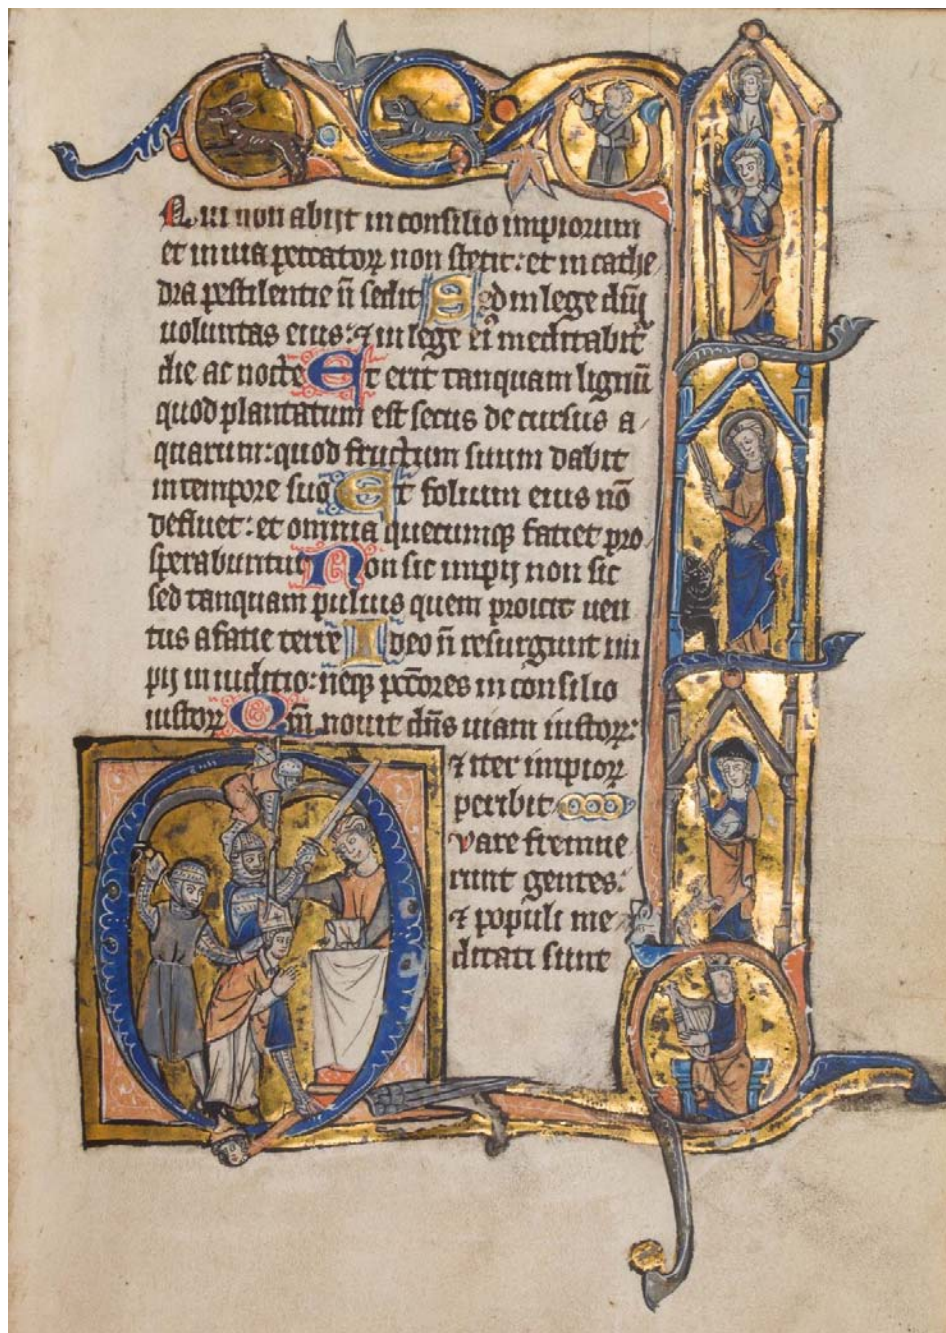 Qui non abijt in consilio impiorum
et in uia peccatoꝝ non stetit: et in cathe
dra pestilentie n̄ sedit Sed in lege dn̄i
uoluntas eius: ⁊ in lege ei᷒ meditabit᷑
die ac nocte Et erit tanquam lignū
quod plantatum est secus de cursus a
quarum: quod fructum suum dabit
in tempore suo Et folium eius nō
defluet: et omnia quecumqꝫ faciet pro
sperabuntur Non sic impij non sic
sed tanquam puluis quem proicit uen
tus a facie terre Ideo n̄ resurgunt im
pij in iudicio: neqꝫ pctōres in consilio
iustoꝝ Qm̄ nouit dn̄s uiam iustoꝝ:
⁊ iter impioꝝ
peribit
vare fremue
runt gentes:
⁊ populi me
ditati sunt